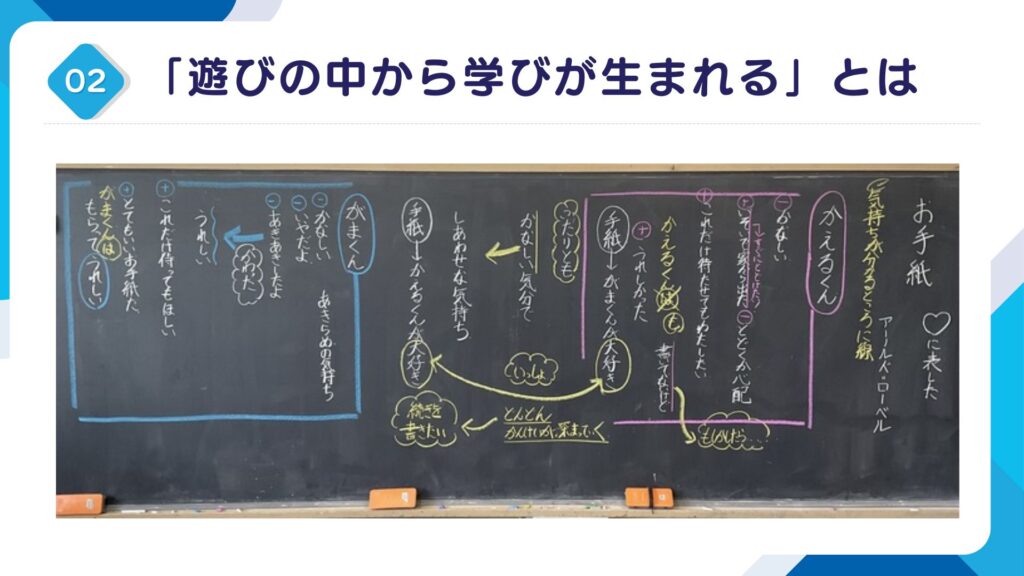 02
「遊びの中から学びが生まれる」とは
お手紙
アーノルド・ローベル
♡に表した
気持ちが分かるところに線
かえるくん
㊀かなしい
㊉いそいで家から出た
㊀とどくか心配
㊉これだけ待たせてもわたしたい
かえるくんは も
㊉うれしかった
書きてなけど
もしかしたら…
手紙→がまくんが大好き
ふたりとも
かなしい気分で
しあわせな気持ち
手紙→かえるくんが大好き
いっしょ
どんどん
かんけいが深まっていく
続きを
書きたい
がまくん
㊀かなしい
㊀いやだよ
㊀あきあきしたよ
あきらめの気持ち
かわった
うれしい
㊉これだけ待ってもほしい
㊉とてもいいお手紙だ
がまくんは
もらってうれしい